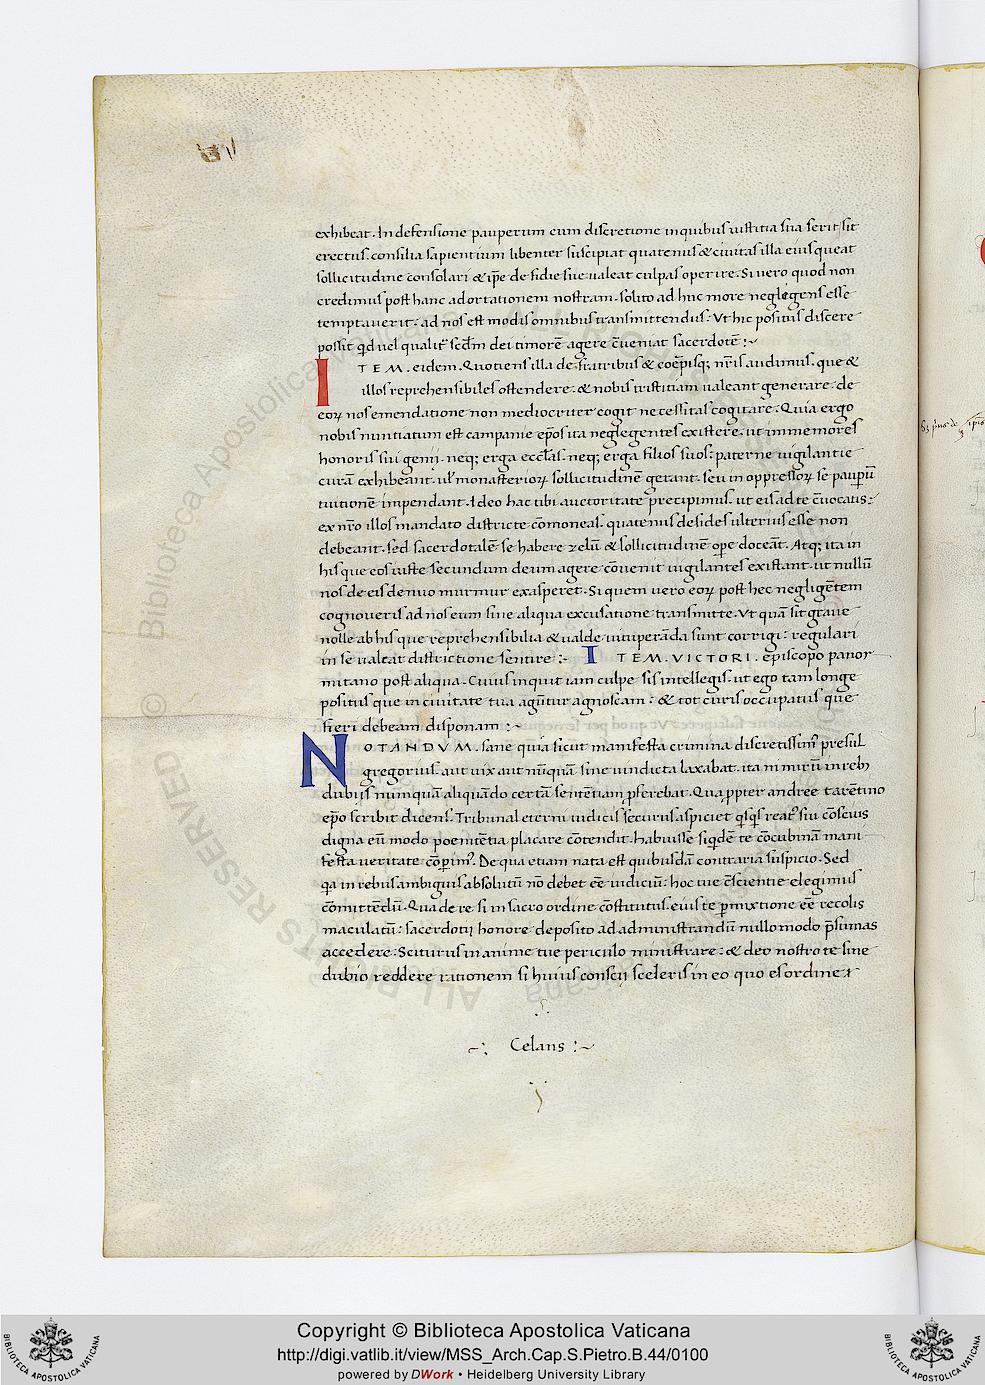 exhibeat. In defensione pauperum cum discretione in quibus iustitia sua serit sit
erectus. consilia sapientium libenter suscipiat quatenus & ciuitas illa eius queat
sollicitudine consolari & ip̄e desidie sue ualeat culpas operire. Si uero quod non
credimus post hanc adortationem nostram. solito ad huc more neglegens esse
temptauerit. ad nos est modis omnibus transmittendus. Vt hic positus discere
possit qd uel qualit̄ scd̄m dei timorē agere c̄ueniat sacerdotē :~
ITEM. eidem. Quotiens illa de fratribus & coep̄isq; nr̄is audimus. que &
illos reprehensibiles ostendere. & nobis tristitiam ualeant generare. de
eoꝝ nos emendatione non mediocriter cogit necessitas cogitare. Quia ergo
nobis nuntiatum est campanie ep̄os ita neglegentes existere. ut immemores
honoris sui genij. neq; erga eccl̄as. neq; erga filios suos: paterne uigilantie
curā exhibeant. uł monasterioꝝ sollicitudinē gerant. seu in oppressoꝝ se paup̱ū
tuitionē impendant. Ideo hac tibi auctoritate p̄recipimus. ut eis ad te c̄uocatis:
ex nr̄o illos mandato districte cōmoneas. quatenus desides ulterius esse non
debeant. sed sacerdotalē se habere zelū & sollicitudinē ope̱ doceāt. Atq; ita in
his que eos iuste secundum deum agere cōuenit uigilantes existant. ut nullū
nos de eis denuo murmur exasperet. Si quem uero eoꝝ post hec negligētem
cognoueris ad nos eum sine aliqua excusatione transmitte. Vt quā sit graue
nolle ab his que reprehensibilia & ualde uituperāda sunt corrigi: regulari
in se ualeat districtione sentire :~ ITEM. VICTORI. episcopo panor
mitano post aliqua. Cuius inquit iam culpe sis intellegis. ut ego tam longe
positus que in ciuitate tua agūtur agnoscam: & tot curis occupatus que
fieri debeam disponam :~
NOTANDVM. sane quia sicut manifesta crimina discretissim' presul
gregorius. aut uix aut nūquā sine uindicta laxabat. ita ni mirū in reb;
dubijs numquā aliquādo certā sentētiam p̱ferebat. Qua p̱pter andree tarētino
ep̄o scribit dicens. Tribunal eterni iudicis securus aspiciet qsqs reat' sui cōscius
digna eū modo poenitētia placare cōtendit. habuisse siqdē te cōcubinā mani
festa ueritate cōp̱im'. De qua etiam nata est quibusdā contraria suspicio. Sed
qa in rebus ambiguis absolutū nō debet eē iudiciū: hoc tue c̄scientie elegimus
cōmittēdū. Qua de re si in sacro ordine cōstitutus. eius te p̱mixtione eē recolis
maculatū: sacerdotij honore deposito ad administrandū nullo modo p̄sumas
accedere: Sciturus in anime tue periculo ministrare: & deo nostro te sine
dubio reddere rationem si huius conscij sceleris in eo quo es ordine
Celans :~
Copyright © Biblioteca Apostolica Vaticana
http://digi.vatlib.it/view/MSS_Arch.Cap.S.Pietro.B.44/0100
powered by DWork • Heidelberg University Library